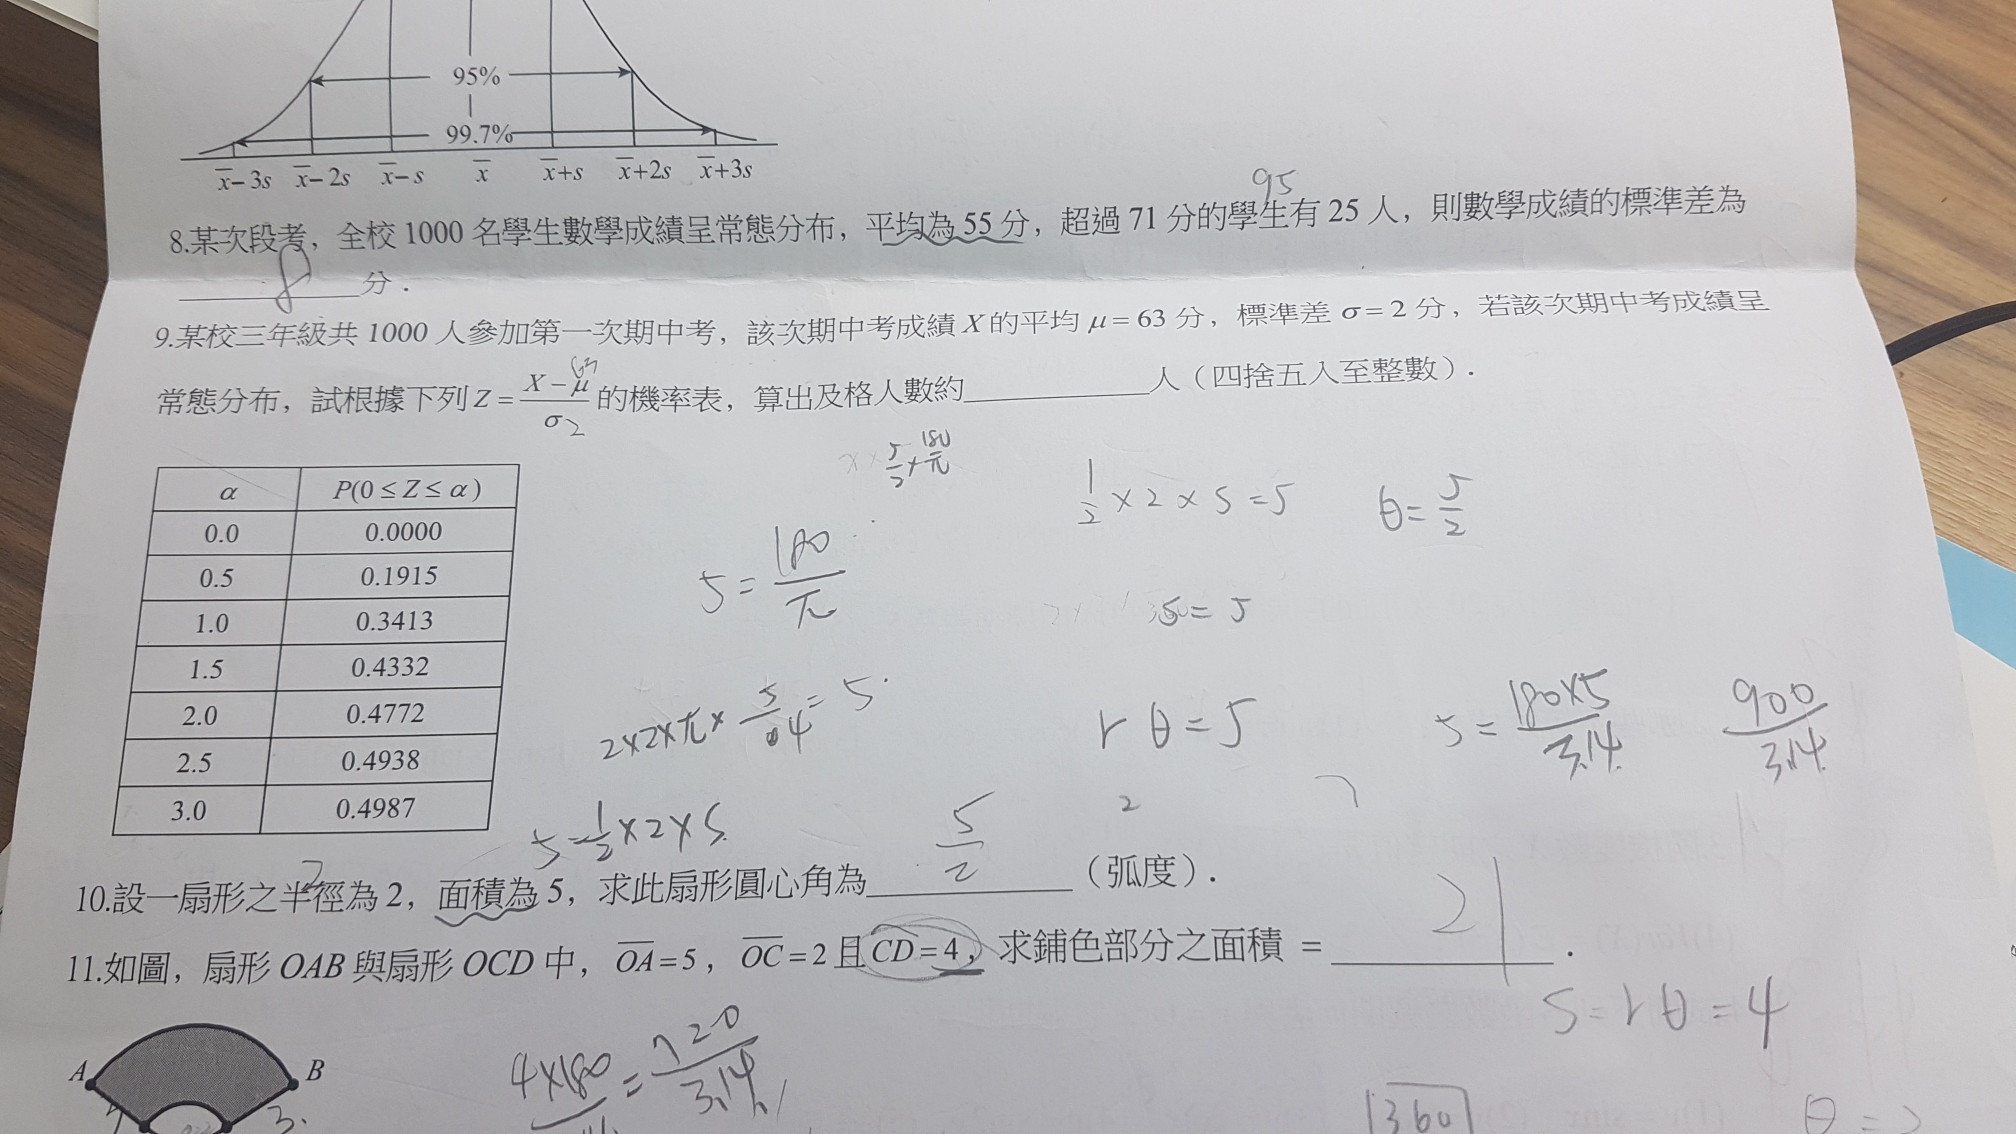 95%
99.7%
x̄−3s x̄−2s x̄−s x̄ x̄+s x̄+2s x̄+3s
95
8.某次段考，全校 1000 名學生數學成績呈常態分布，平均為 55 分，超過 71 分的學生有 25 人，則數學成績的標準差為
8 分．
9.某校三年級共 1000 人參加第一次期中考，該次期中考成績 X 的平均 μ = 63 分，標準差 σ = 2 分，若該次期中考成績呈
63
常態分布，試根據下列 Z = (X − μ)/σ 的機率表，算出及格人數約__________人（四捨五入至整數）．
2
α P(0 ≤ Z ≤ α)
0.0 0.0000
0.5 0.1915
1.0 0.3413
1.5 0.4332
2.0 0.4772
2.5 0.4938
3.0 0.4987
5/2 × 180/π
1/2 × 2 × S = 5
θ = 5/2
5 = 180/π
= 5
2×2×π× = 5
rθ = 5
5 = 180×5/3.14
900/3.14
5 = 1/2 × 2 × S
2
2
10.設一扇形之半徑為 2，面積為 5，求此扇形圓心角為 5/2 （弧度）．
11.如圖，扇形 OAB 與扇形 OCD 中，OA = 5，OC = 2 且 CD = 4，求鋪色部分之面積 = 21 ．
S = rθ = 4
4×180 = 720/3.14
A B
3.
360
θ =